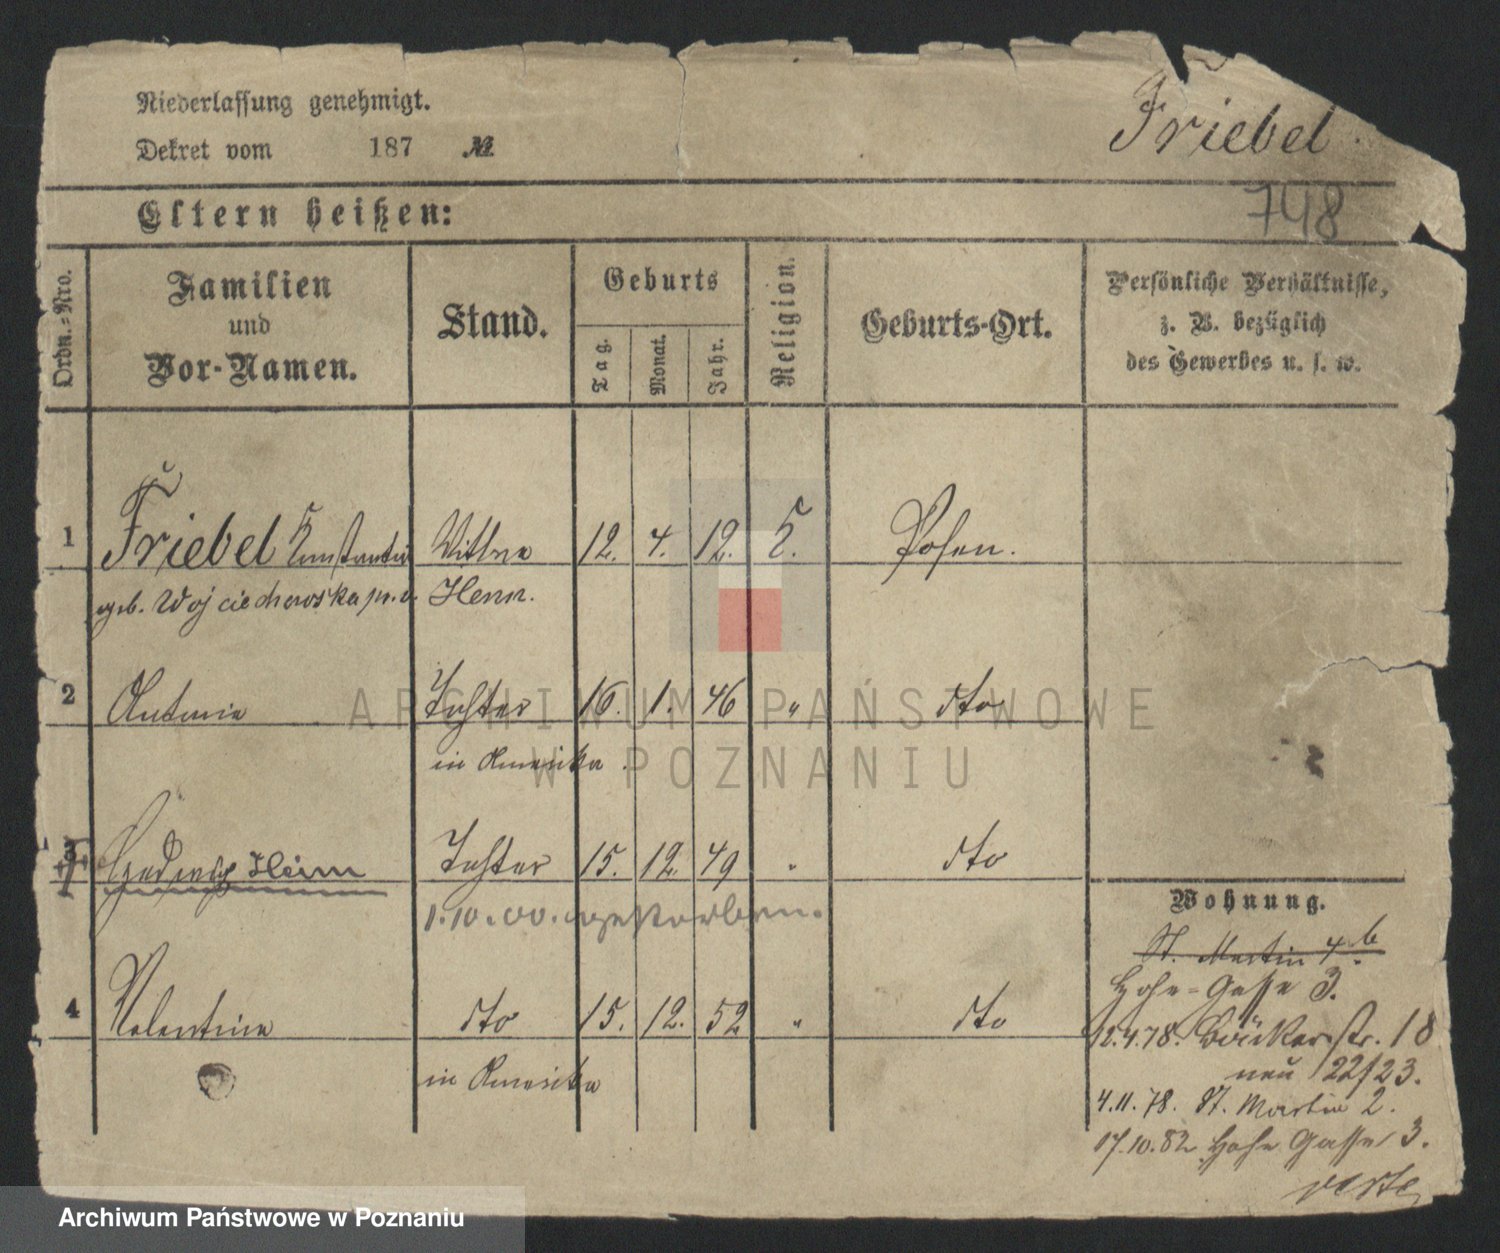 Niederlassung genehmigt.
Dekret vom 187 №
Friebel.
748
Eltern heißen:
Ordn.-Nro.
Familien
und
Vor-Namen.
Stand.
Geburts
Tag.
Monat.
Jahr.
Religion.
Geburts-Ort.
Persönliche Verhältnisse,
z. B. bezüglich
des Gewerbes u. s. w.
1 Friebel Konstantia Wittwe 12. 4. 12. K. Posen.
geb. Wojciechowska pr. v. Henn.
2 Antonie Tochter 16. 1. 46 " dto
in Amerika.
3 Hedwig Heim Tochter 15. 12. 49 " dto
1.10.00. gestorben.
4 Valentine dto 15. 12. 52 " dto
in Amerika
Wohnung.
St. Martin 4b.
Hohe-Gasse 3.
12.4.78. Bäckerstr. 18
neu 22/23.
4.11.78. St. Martin 2.
17.10.82 Hohe Gasse 3.
verte
ARCHIWUM PAŃSTWOWE
W POZNANIU
Archiwum Państwowe w Poznaniu